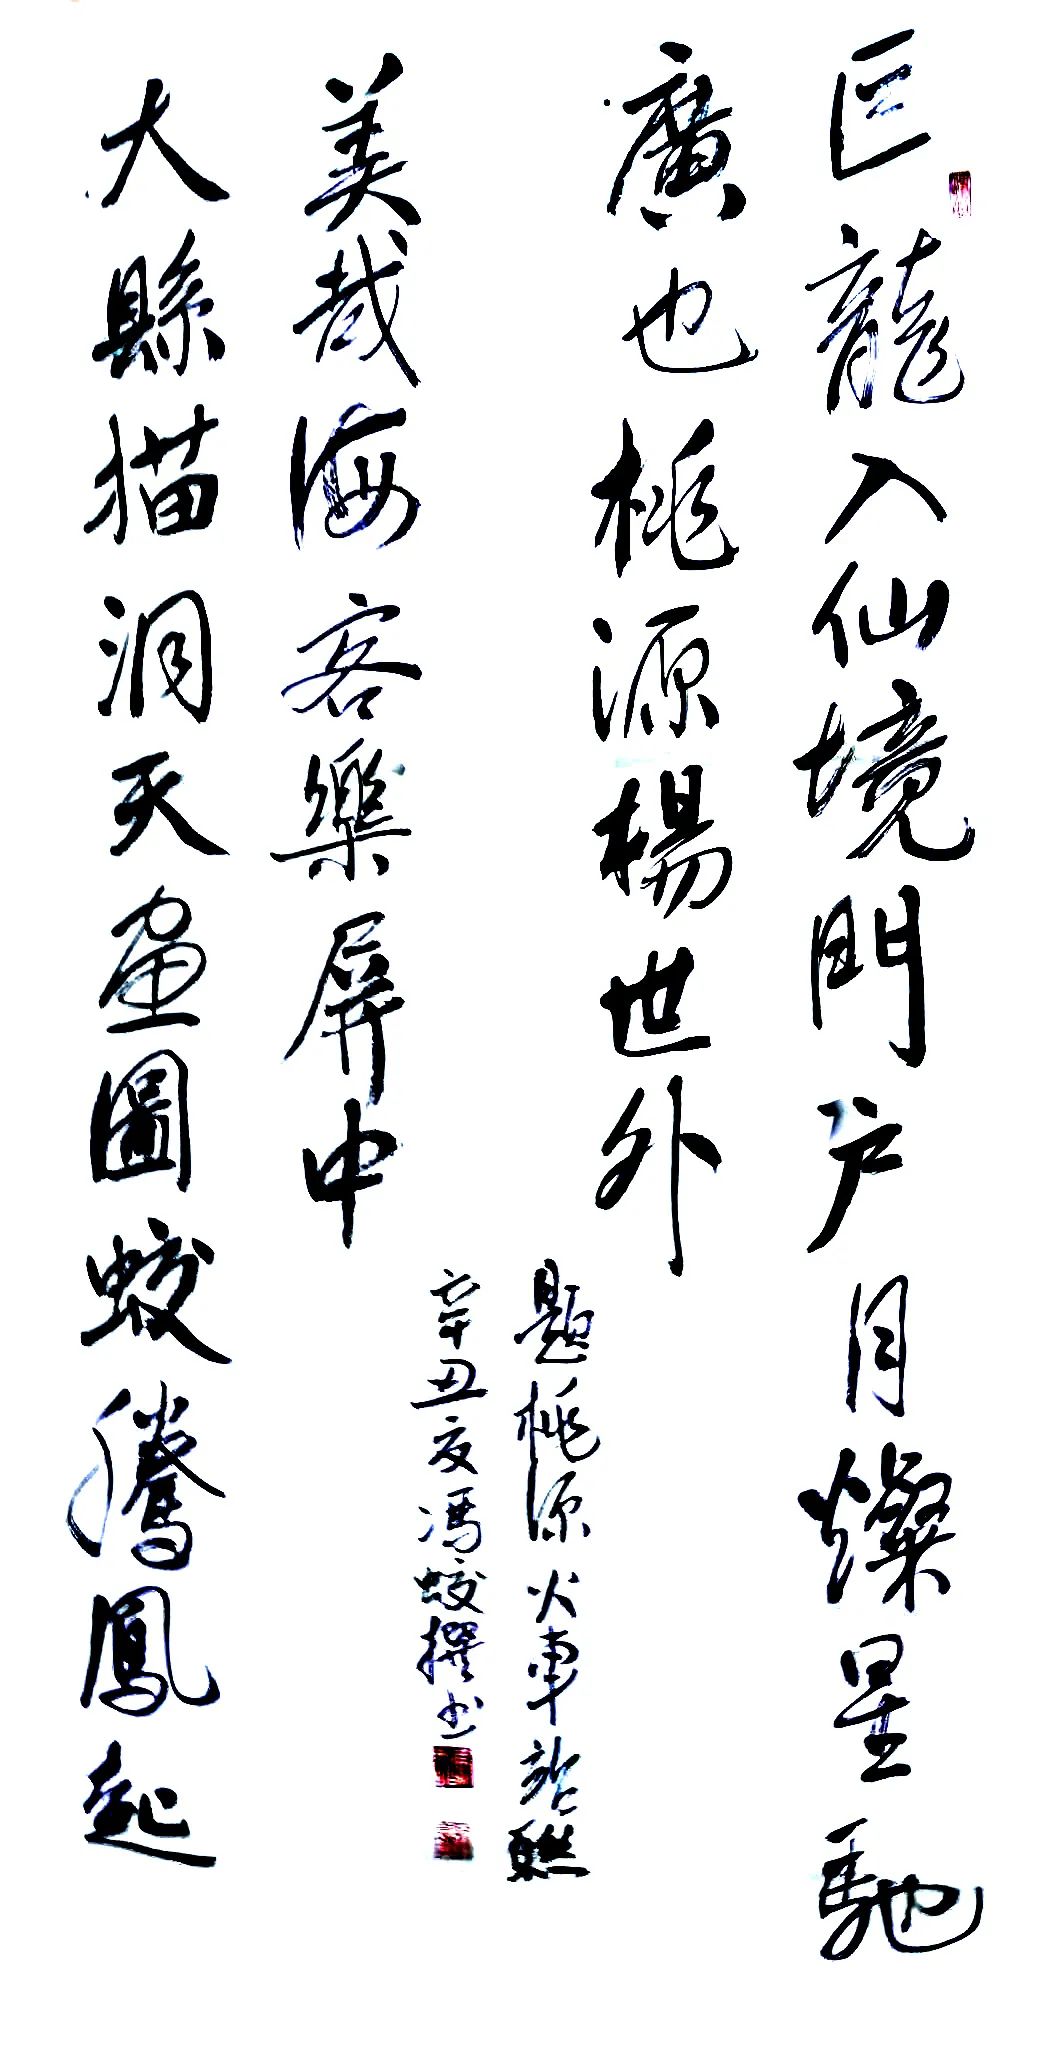 巨龍入仙境門户月燦星馳
廣也桃源楊世外
大縣猫洞天畫圖蛟騰鳳起
美哉海客樂屏中
題桃源火車站聯
辛丑夏馮蛟撰书